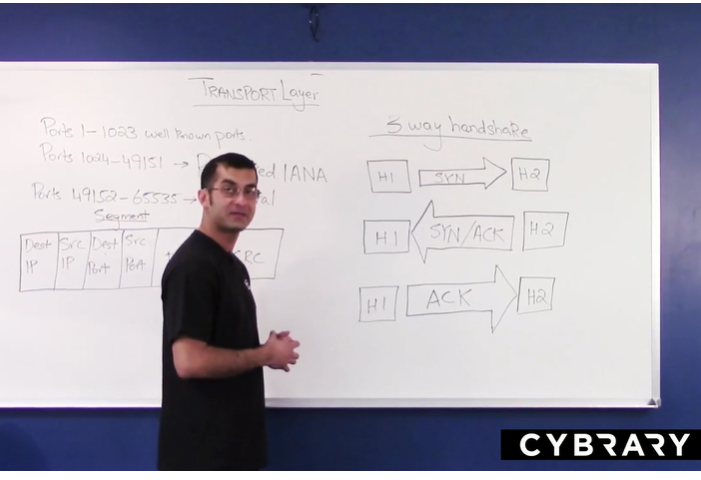 TRANSPORT Layer
Ports 1-1023 well known ports.
Ports 1024-49151 → IANA
Ports 49152-65535 →
Segment
Dest IP
Src IP
Dest Port
Src Port
3 way handshake
H1 SYN H2
H1 SYN/ACK H2
H1 ACK H2
CYBRARY